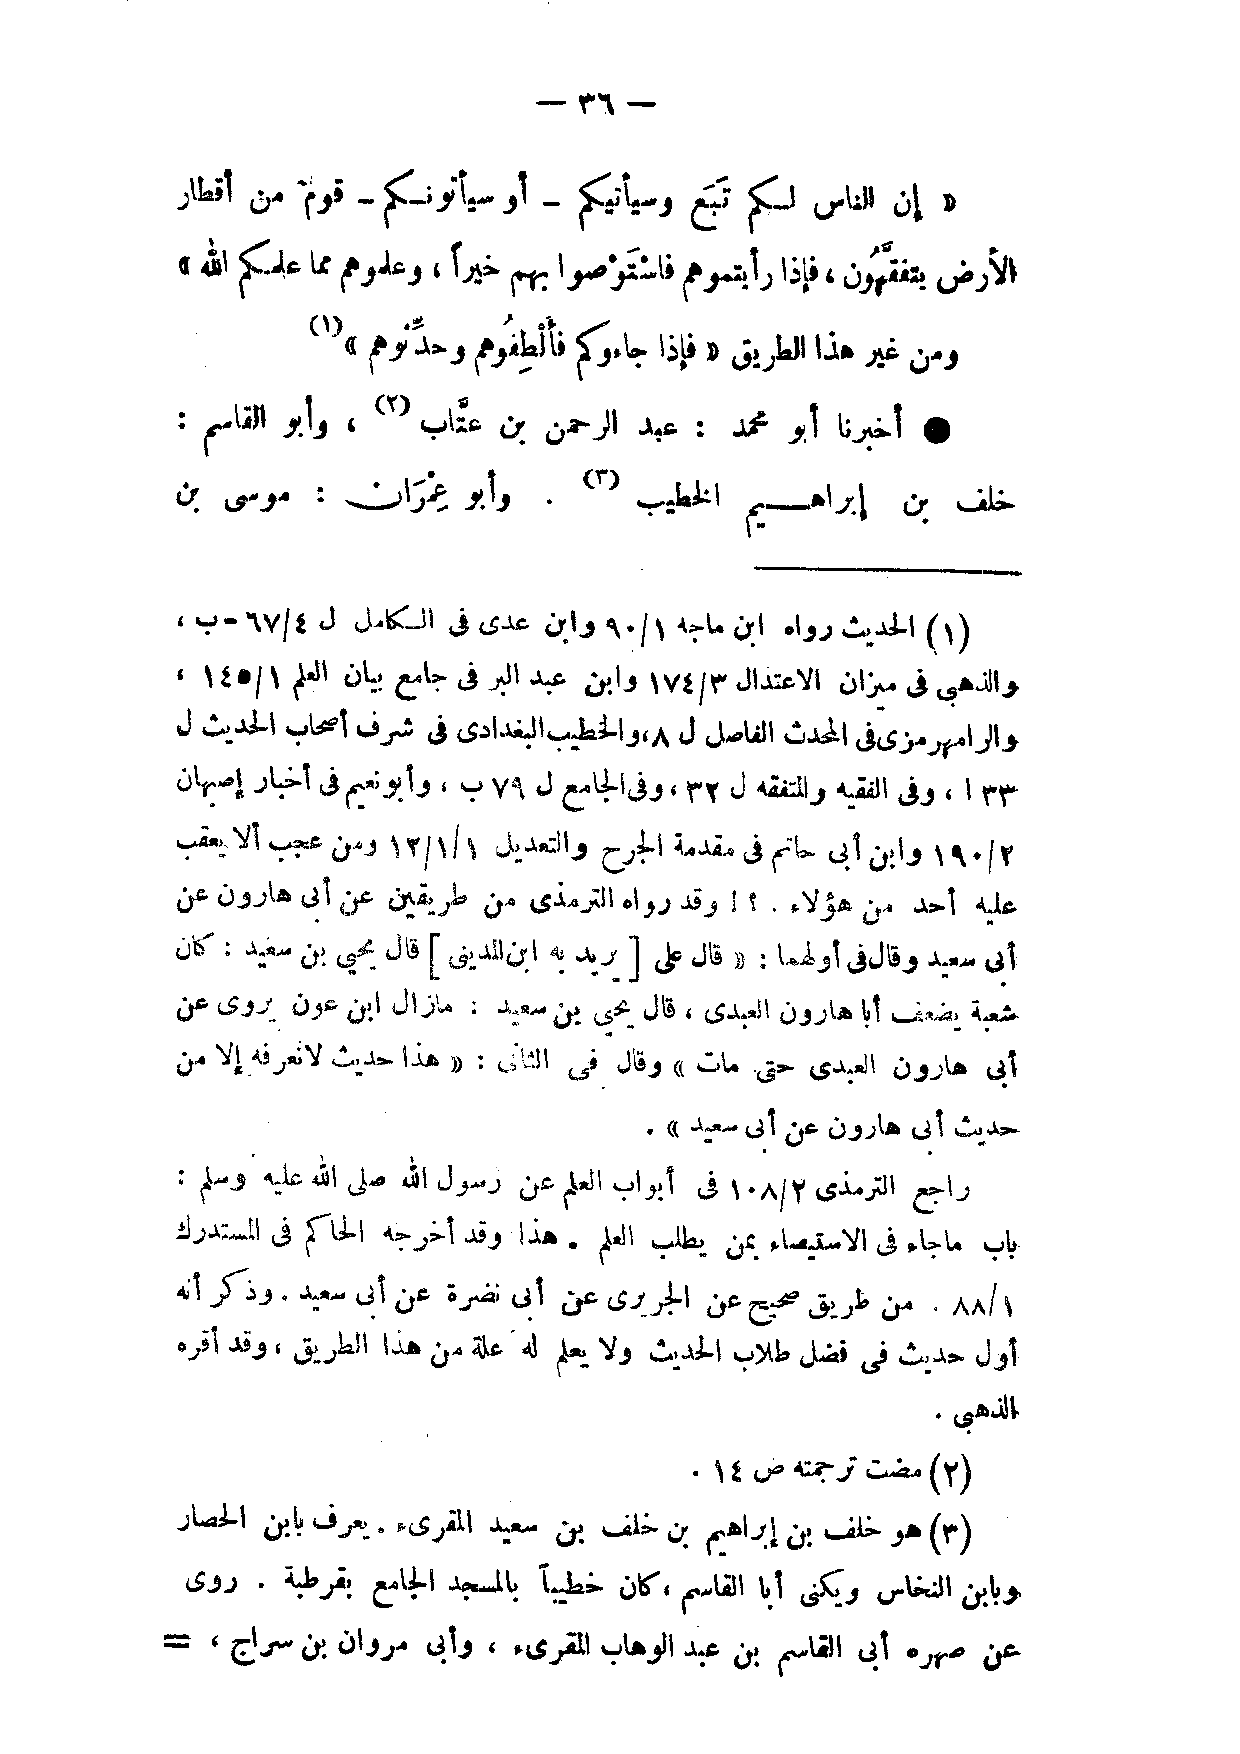 — ٣٦ —
« إن الناس لـكم تَبَع وسيأتيكم – أو سيأتونـكم – قومٌ من أقطار
الأرض يتفقَّهُون ، فإذا رأيتموهم فاسْتَوْصوا بهم خيراً ، وعلموهم مما علمكم الله »
ومن غير هذا الطريق « فإذا جاءوكم فأَلْطِفُوهم وحدِّثوهم »(١)
● أخبرنا أبو محمد : عبد الرحمن بن عتَّاب (٢) ، وأبو القاسم :
خلف بن إبراهـــيم الخطيب (٣) . وأبو عِمْرَان : موسى بن
(١) الحديث رواه ابن ماجه ٩٠/١ وابن عدى فى الـكامل ل ٦٧/٤ - ب ،
والذهبى فى ميزان الاعتدال ١٧٤/٣ وابن عبد البر فى جامع بيان العلم ١٤٥/١ ،
والرامهرمزى فى المحدث الفاصل ل ٨ ، والخطيب البغدادى فى شرف أصحاب الحديث ل
٣٣ ا ، وفى الفقيه والمتفقه ل ٣٢ ، وفى الجامع ل ٧٩ ب ، وأبو نعيم فى أخبار إصبهان
١٩٠/٢ وابن أبى حاتم فى مقدمة الجرح والتعديل ١٢/١/١ ومن عجب ألا يعقب
عليه أحد من هؤلاء . ؟ ! وقد رواه الترمذى من طريقين عن أبى هارون عن
أبى سعيد وقال فى أولهما : « قال على [ يريد به ابن المدينى ] قال يحيى بن سعيد : كان
شعبة يضعف أبا هارون العبدى ، قال يحيى بن سعيد : مازال ابن عون يروى عن
أبى هارون العبدى حتى مات » وقال فى الثانى : « هذا حديث لانعرفه إلا من
حديث أبى هارون عن أبى سعيد » .
راجع الترمذى ١٠٨/٢ فى أبواب العلم عن رسول الله صلى الله عليه وسلم :
باب ماجاء فى الاستيصاء بمن يطلب العلم . هذا وقد أخرجه الحاكم فى المستدرك
٨٨/١ . من طريق صحيح عن الجريرى عن أبى نضرة عن أبى سعيد . وذكر أنه
أول حديث فى فضل طلاب الحديث ولا يعلم له علة من هذا الطريق ، وقد أقره
الذهبى .
(٢) مضت ترجمته ص ١٤ .
(٣) هو خلف بن إبراهيم بن خلف بن سعيد المقرىء . يعرف بابن الحصار
وبابن النخاس ويكنى أبا القاسم ، كان خطيباً بالمسجد الجامع بقرطبة . روى
عن صهره أبى القاسم بن عبد الوهاب المقرىء ، وأبى مروان بن سراج ، =